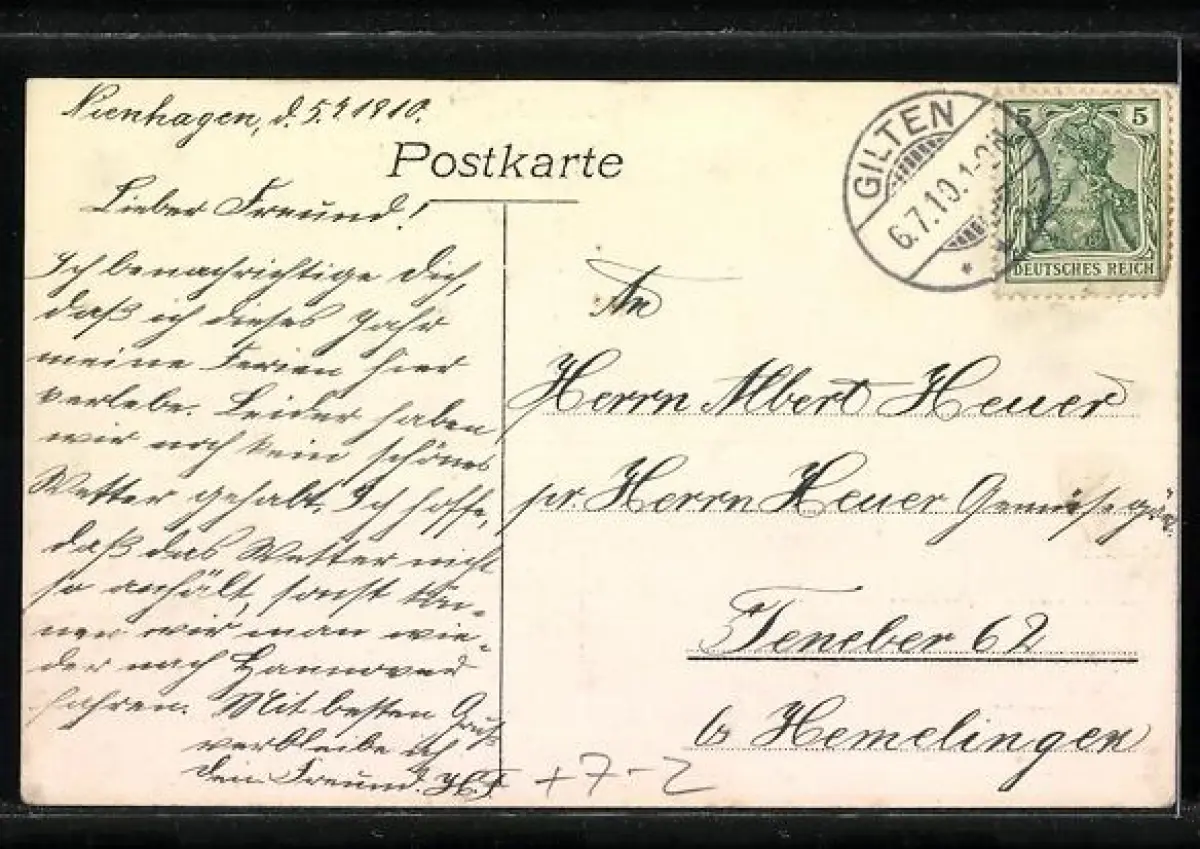 Nienhagen, d. 5.7.1910.
Postkarte
Lieber Freund!
Ich benachrichtige Dich,
daß ich dieses Jahr
meine Ferien hier
verlebe. Leider haben
wir noch kein schönes
Wetter gehabt. Ich hoffe,
daß das Wetter nicht
so anhält, sonst kön-
nen wir man wie-
der nach Hannover
fahren. Mit besten Gruß
verbleibe ich
Dein Freund.
GILTEN
6.7.10.1-2N
5 5
DEUTSCHES REICH
An
Herrn Albert Heuer
pr. Herrn Heuer Gemüsegärt.
Teneber 62
b Hemelingen
+7-2